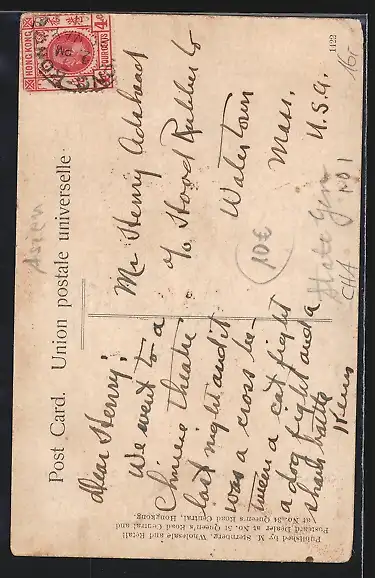 Post Card. Union postale universelle
HONG KONG
4c
FOUR CENTS
HONG KONG
PM
1122
16.-
Asien
Dear Henry:
We went to a
Chinese Theatre
last night and it
was a cross be
tween a cat fight
a dog fight and a
Mr Henry
c/o Hood Rubber Co
Watertown
Mass.
U.S.A.
10€
CHA
Published by M. Sternberg, Wholesale and Retail
Postcard Dealer at No. 51 Queen's Road Central and
at No. 34 Queen's Road Central, Hongkong.